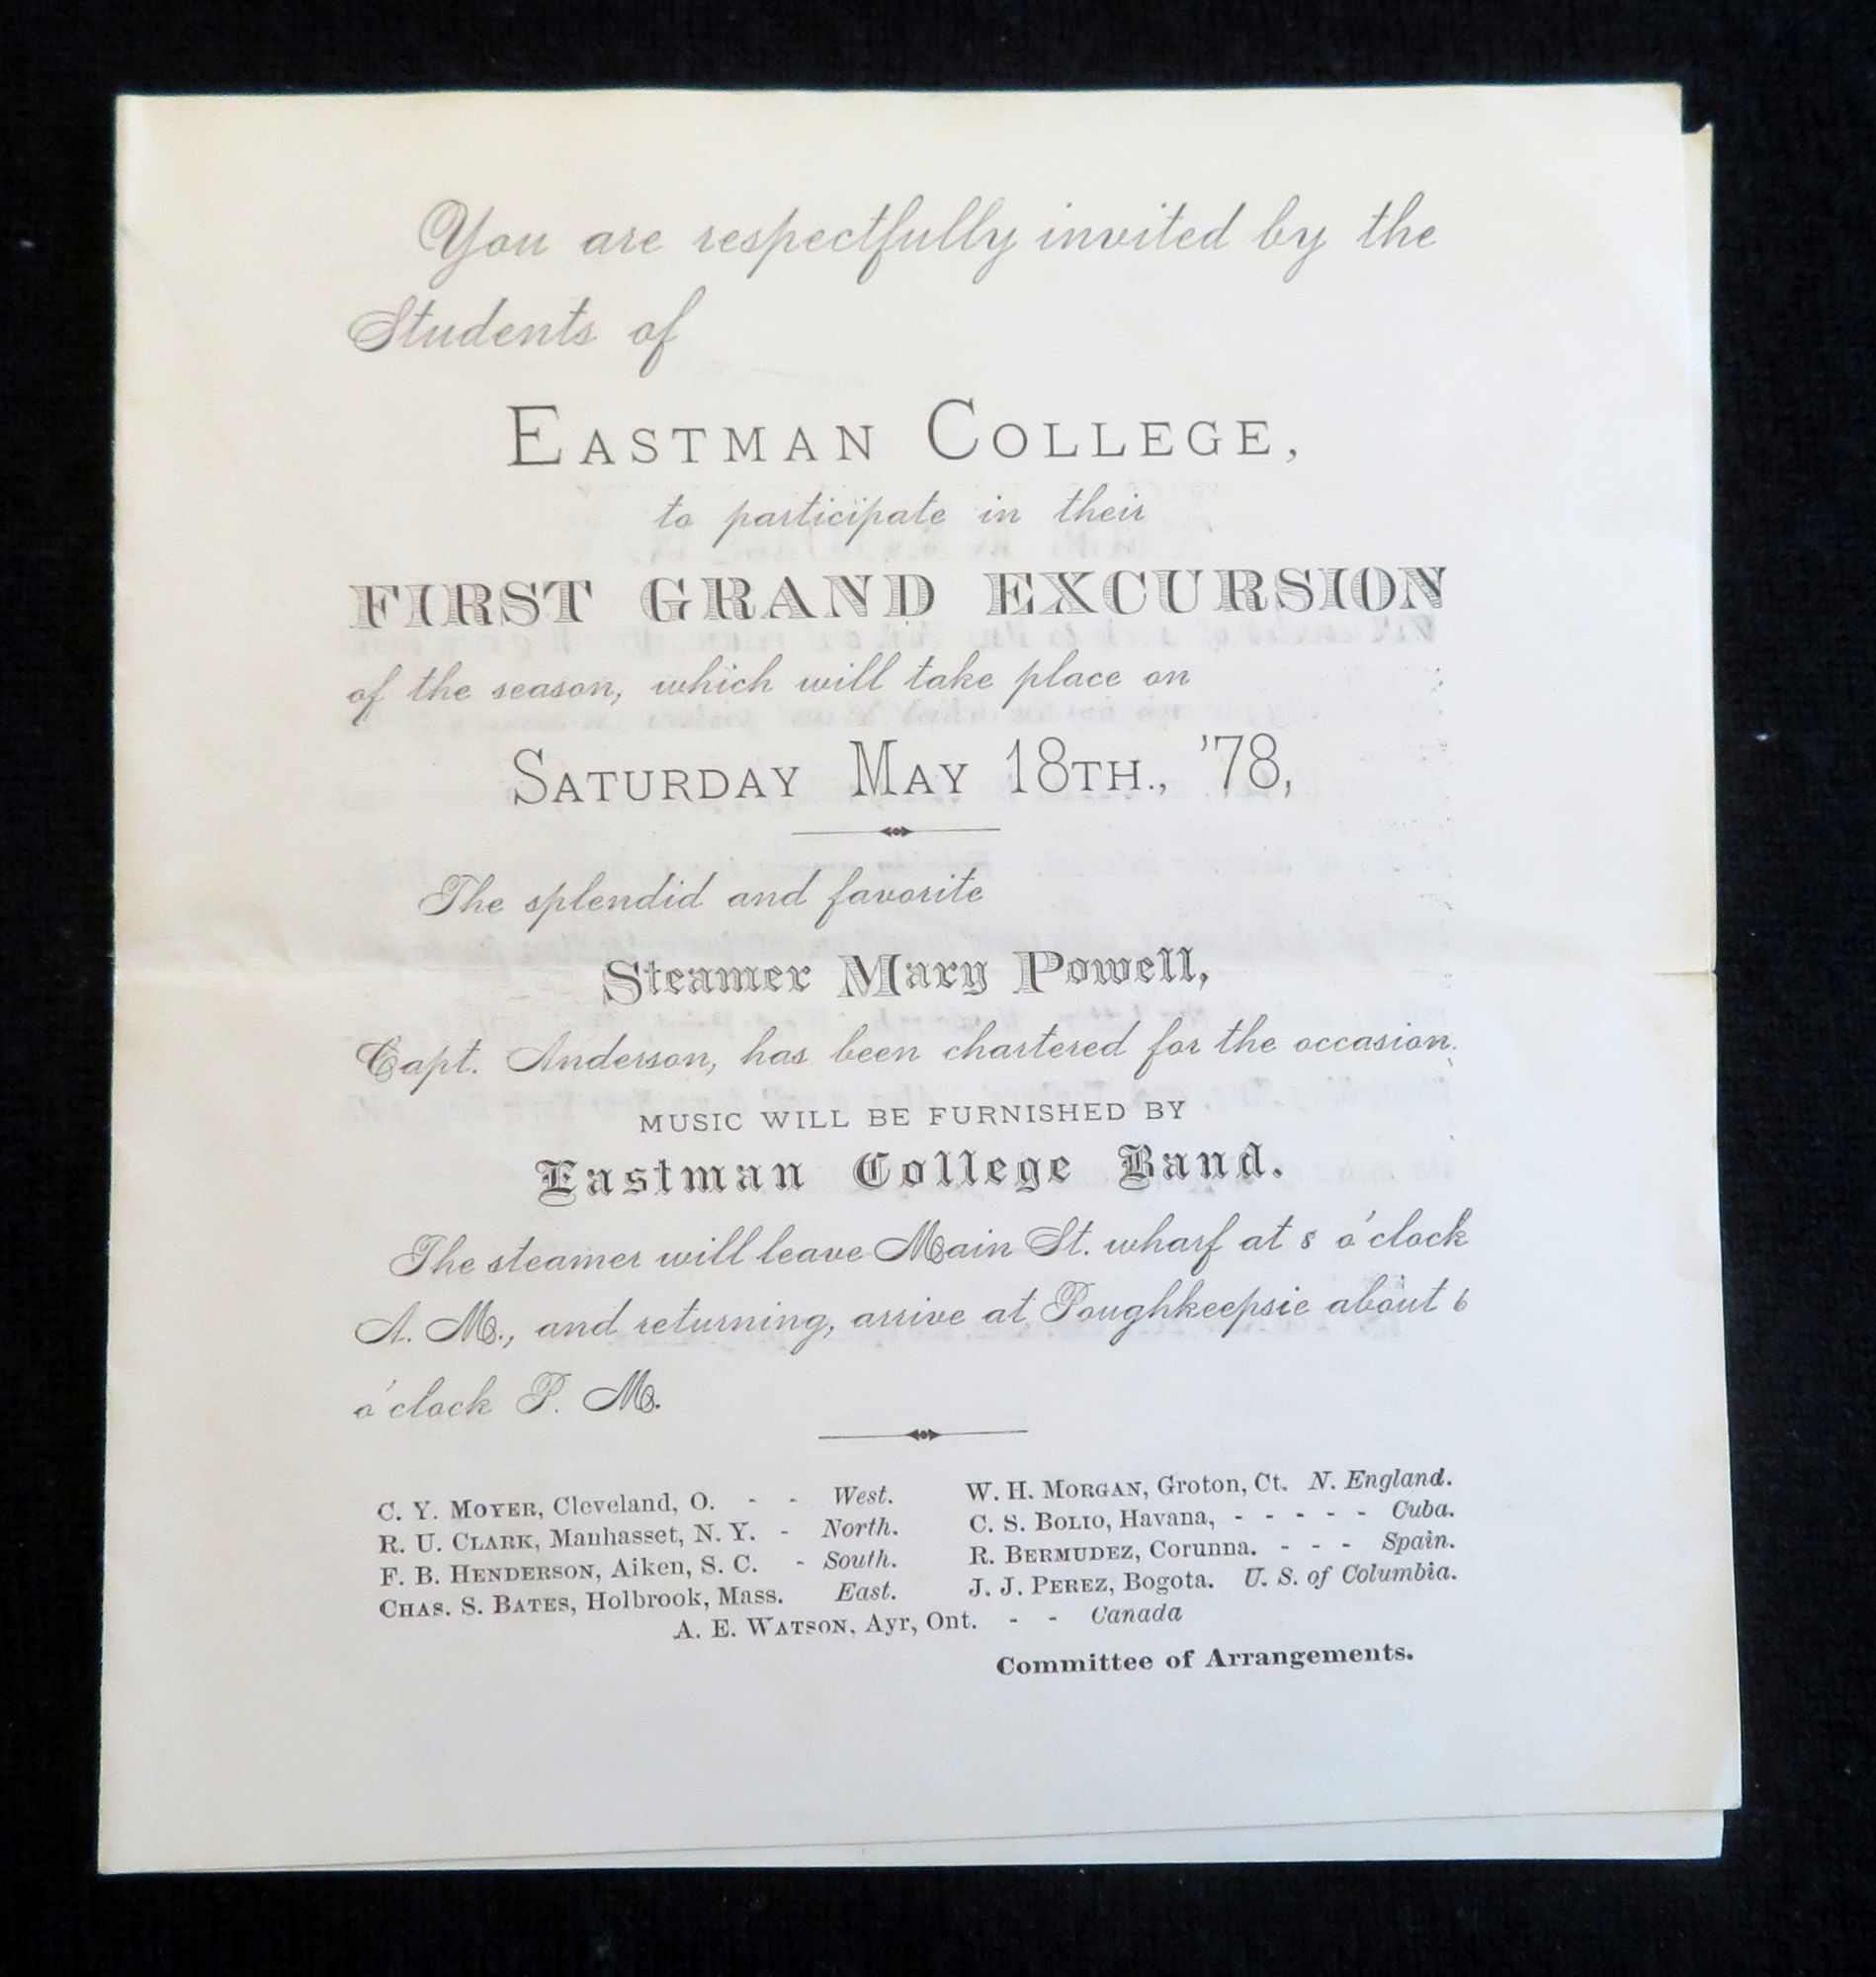 You are respectfully invited by the
Students of
EASTMAN COLLEGE,
to participate in their
FIRST GRAND EXCURSION
of the season, which will take place on
SATURDAY MAY 18TH., '78,
The splendid and favorite
Steamer Mary Powell,
Capt. Anderson, has been chartered for the occasion.
MUSIC WILL BE FURNISHED BY
Eastman College Band.
The steamer will leave Main St. wharf at 8 o'clock
A. M., and returning, arrive at Poughkeepsie about 6
o'clock P. M.
C. Y. MOYER, Cleveland, O. - - West. W. H. MORGAN, Groton, Ct. N. England.
R. U. CLARK, Manhasset, N. Y. - North. C. S. BOLIO, Havana, - - - - - Cuba.
F. B. HENDERSON, Aiken, S. C. - South. R. BERMUDEZ, Corunna. - - - Spain.
CHAS. S. BATES, Holbrook, Mass. East. J. J. PEREZ, Bogota. U. S. of Columbia.
A. E. WATSON, Ayr, Ont. - - Canada
Committee of Arrangements.